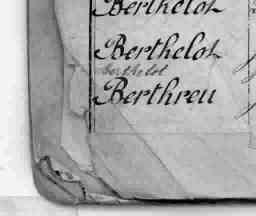 Berthelot
Berthelot
berthelot
Berthreu